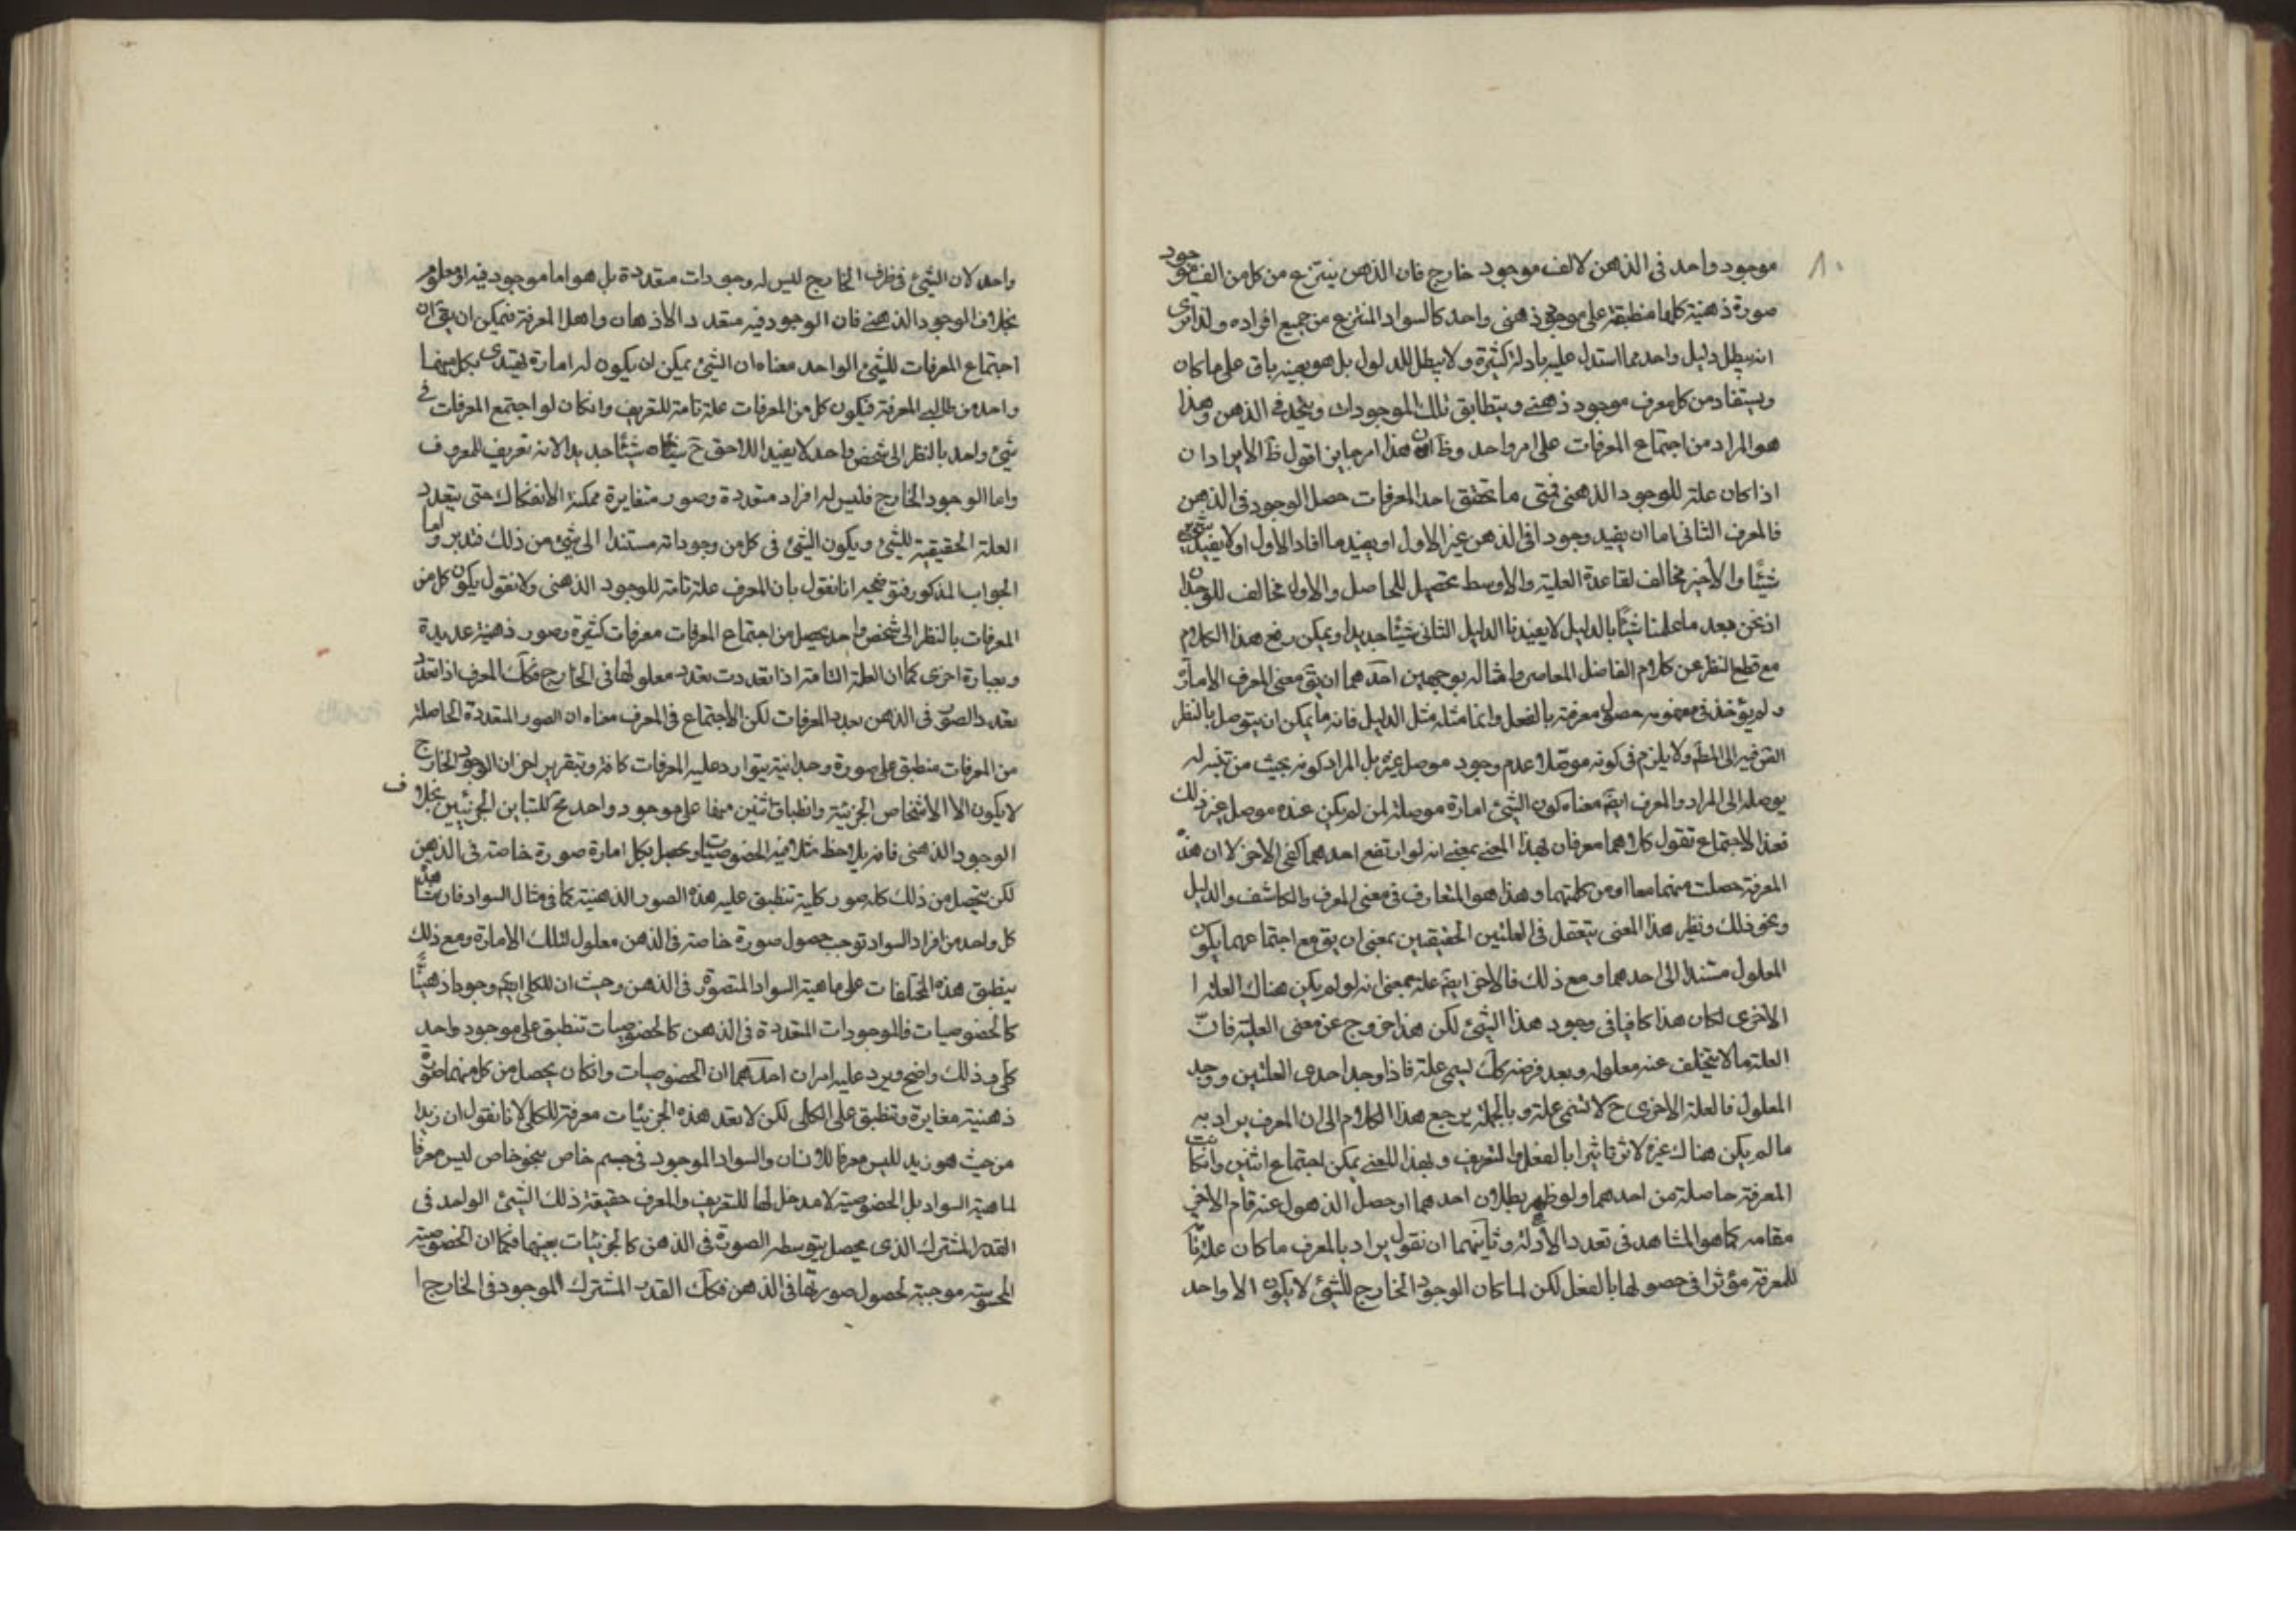 ٨٠
موجود واحد فى الذهن لالف موجود خارج فان الذهن ينتزع من كل من الف موجود
صورة ذهنية كلها منطبقة على موجود ذهنى واحد كالسواد المنتزع من جميع افراده ولذا ترى
انه يبطل دليل واحد مما استدل عليه بادلة كثيرة ولا يبطل المدلول بل هو بعينه باق على ما كان
ويستفاد من كل معرف موجود ذهنى ويتطابق تلك الموجودات ويتحد فى الذهن وهذا
هو المراد من اجتماع المعرفات على امر واحد وظ ان هذا امر جاين اقول ظ الايراد ان
اذا كان علة للوجود الذهنى فمتى ما تحقق احد المعرفات حصل الوجود فى الذهن
فالمعرف الثانى اما ان يفيد وجودا فى الذهن غير الاول او يفيد ما افاد الاول او لا يفيد
شيئا والاخير مخالف لقاعدة العلية والاوسط تحصيل للحاصل والاول مخالف للوجدان
اذ نحن بعد ما علمنا شيئا بالدليل لا يفيدنا الدليل الثانى شيئا جديدا ويمكن رفع هذا الكلام
مع قطع النظر عن كلام الفاضل المعاصر وامثاله بوجهين احدهما ان يق معنى المعرف الامارة
ولم يؤخذ فى مفهومه حصول معرفة بالفعل وانما مثله مثل الدليل فانه ما يمكن ان يتوصل بالنظر
فيه الى المط ولا يلزم فى كونه موصلا عدم وجود موصل غيره بل المراد كونه بحيث من تدبر له
يوصله الى المراد والمعرف ايض معناه كون الشئ امارة موصلة لمن لم يكن عنده موصل غير ذلك
فعند الاجتماع تقول كلاهما معرفان بهذا المعنى بمعنى انه لو ارتفع احدهما كفى الاخر لا ان هذه
المعرفة حصلت منهما معا او من كليهما وهذا هو المتعارف فى معنى المعرف والكاشف والدليل
ونحو ذلك ونظير هذا المعنى يتعقل فى العلتين الحقيقيين بمعنى ان يق مع اجتماعهما يكون
المعلول مستندا الى احدهما ومع ذلك فالاخر ايض علة بمعنى انه لو لم يكن هناك العلة ا
الاخرى لكان هذا كافيا فى وجود هذا الشئ لكن هذا خروج عن معنى العلية فان
العلة ما لا يتخلف عنه معلوله وبعد فرضه كك ليسمى علة فاذا وجد احدى العلتين ووجد
المعلول فالعلة الاخرى ح لا تسمى علة وبالجملة يرجع هذا الكلام الى ان المعرف يراد به
ما لم يكن هناك غيره لاثر تاثيرا بالفعل والتعريف وبهذا المعنى يمكن اجتماع اثنين وان كانت
المعرفة حاصلة من احدهما ولو ظهر بطلان احدهما او حصل الذهول عنه قام الاخر
مقامه كما هو المشاهد فى تعدد الادلة وثانيهما ان نقول يراد بالمعرف ما كان علة تامة
للمعرفة مؤثرا فى حصولها بالفعل لكن لما كان الوجود الخارج للشئ لا يكون الا واحد
واحد لان الشئ فى ظرف الخارج ليس له وجودات متعددة بل هو اما موجود فيه او معلوم
بخلاف الوجود الذهنى فان الوجود فيه متعدد الاذهان واهل المعرفة فيمكن ان يق ان
اجتماع المعرفات للشئ الواحد معناه ان الشئ يمكن ان يكون له امارة يهتدى بكل منهما
واحد من طالبى المعرفة فيكون كل من المعرفات علة تامة للتعريف وان كان لو اجتمع المعرفات فى
شئ واحد بالنظر الى شخص واحد لا يفيد اللاحق ح شيئا جديدا لانه تعريف للمعروف
واما الوجود الخارج فليس له افراد متعددة وصور متغايرة ممكنة الانفكاك حتى يتعدد
العلة الحقيقية للشئ ويكون الشئ فى كل من وجوداته مستندا الى شئ من ذلك فتدبر واما
الجواب المذكور فتوضيحه انا نقول بان المعرف علة تامة للوجود الذهنى ولا نقول يكون كل من
المعرفات بالنظر الى شخص واحد يحصل من اجتماع المعرفات معرفات كثيرة وصور ذهنية عديدة
وبعبارة اخرى كما ان العلة التامة اذا تعددت تعدد معلولها فى الخارج فكك المعرف اذا تعدد
تعدد الصور فى الذهن بعدد المعرفات لكن الاجتماع فى المعرف معناه ان الصور المتعددة الحاصلة
من المعرفات منطبق على صورة وحدانية يتوارد عليه المعرفات كافة وتبقرير اخر ان الوجود الخارج
لا يكون الا الاشخاص الجزئية وانطباق اثنين منها على موجود واحد مح للتباين الجزئيين بخلاف
الوجود الذهنى فانه يلاحظ مثلا فيه الخصوصيات ويحصل بكل امارة صورة خاصة فى الذهن
لكن يتحصل من ذلك كله صور كلية تنطبق عليه هذه الصور الذهنية كما فى مثال السواد فان مشاهدة
كل واحد من افراد السواد توجب حصول صورة خاصة فى الذهن معلول لتلك الامارة ومع ذلك
ينطبق هذه المختلفات على ماهية السواد المتصورة فى الذهن وحيث ان للكلى ايض وجودا ذهنيا
كالخصوصيات فالموجودات المتعددة فى الذهن كالخصوصيات تنطبق على موجود واحد
كلى وذلك واضح ويرد عليه امران احدهما ان الخصوصيات وان كان يحصل من كل منهما صورة
ذهنية مغايرة وتنطبق على الكلى لكن لا تعد هذه الجزئيات معرفة للكلى لانا نقول ان زيدا
من حيث هو زيد لليس معرفا للانسان والسواد الموجود فى جسم خاص بنحو خاص ليس معرفا
لماهية السواد بل الخصوصية لا مدخل لها للتعريف والمعرف حقيقة ذلك الشئ الواحد فى
القدر المشترك الذى يحصل بتوسطه الصورة فى الذهن كالجزئيات بعينها فكما ان الخصوصية
المحسوسة موجبة لحصول صورتها فى الذهن فكك القدر المشترك الموجود فى الخارج ا